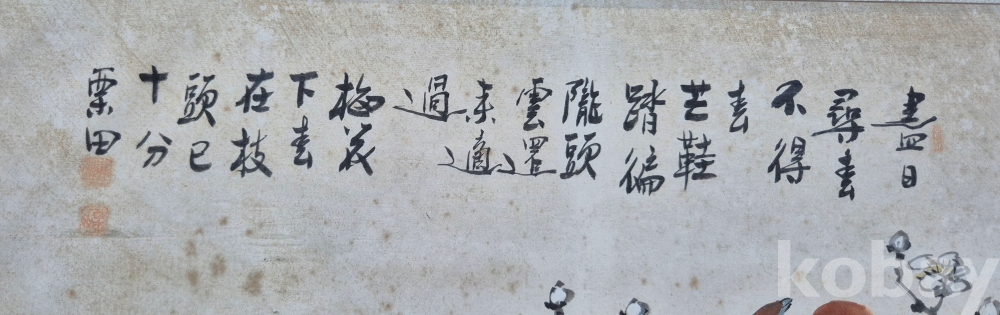 盡日
尋春
不得
春
芒鞋
踏徧
隴頭
雲還
来適
過
梅花
下春
在枝
頭已
十分
栗田
kobay